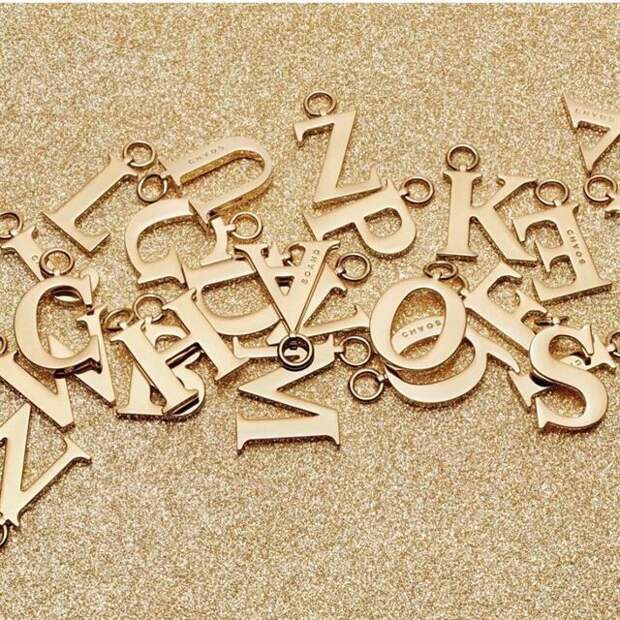 CHAOS
CHAOS
Z
U
L
P
K
E
CHAOS
C
A
CHAOS
C
H
O
CHAOS
S
M
Z